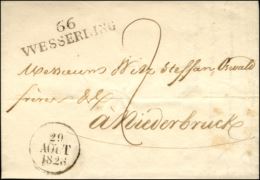 66
WESSERLING
2
Messieurs Witz Steffan, Oswald
frères & C
à Niederbruck
29
AOUT
1828